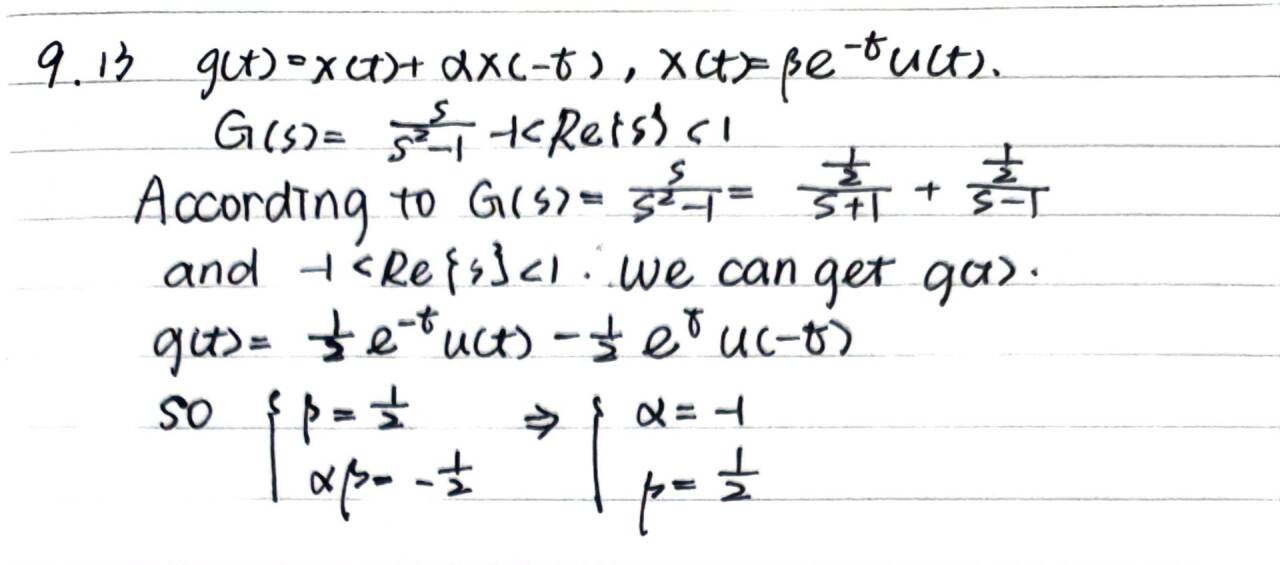 9.13 g(t)=x(t)+αx(-t), x(t)=βe^{-t}u(t).
G(s)= \frac{s}{s^2-1} -1<Re{s}<1
According to G(s)= \frac{s}{s^2-1} = \frac{\frac{1}{2}}{s+1} + \frac{\frac{1}{2}}{s-1}
and -1<Re{s}<1. we can get g(t).
g(t)= \frac{1}{2}e^{-t}u(t) - \frac{1}{2}e^{t}u(-t)
so { β=\frac{1}{2} ⇒ { α=-1
αβ=-\frac{1}{2} β=\frac{1}{2}